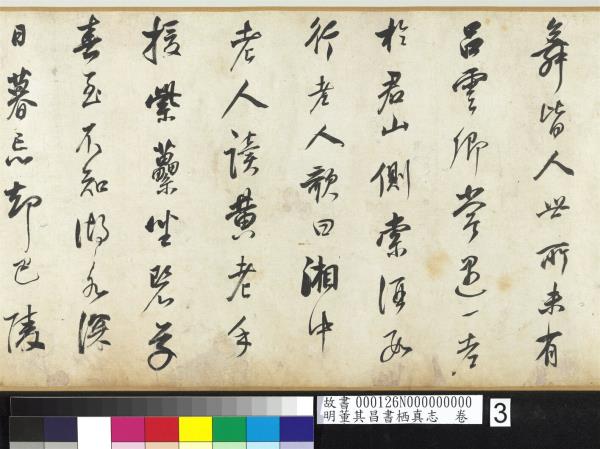 舞皆人世所未有
呂雲卿嘗遇一老
於君山側索酒數
行老人歌曰湘中
老人讀黃老手
援紫藟坐碧草
春至不知湖水深
日暮忘却巴陵
故書 000126N000000000
明董其昌書栖真志 卷
3